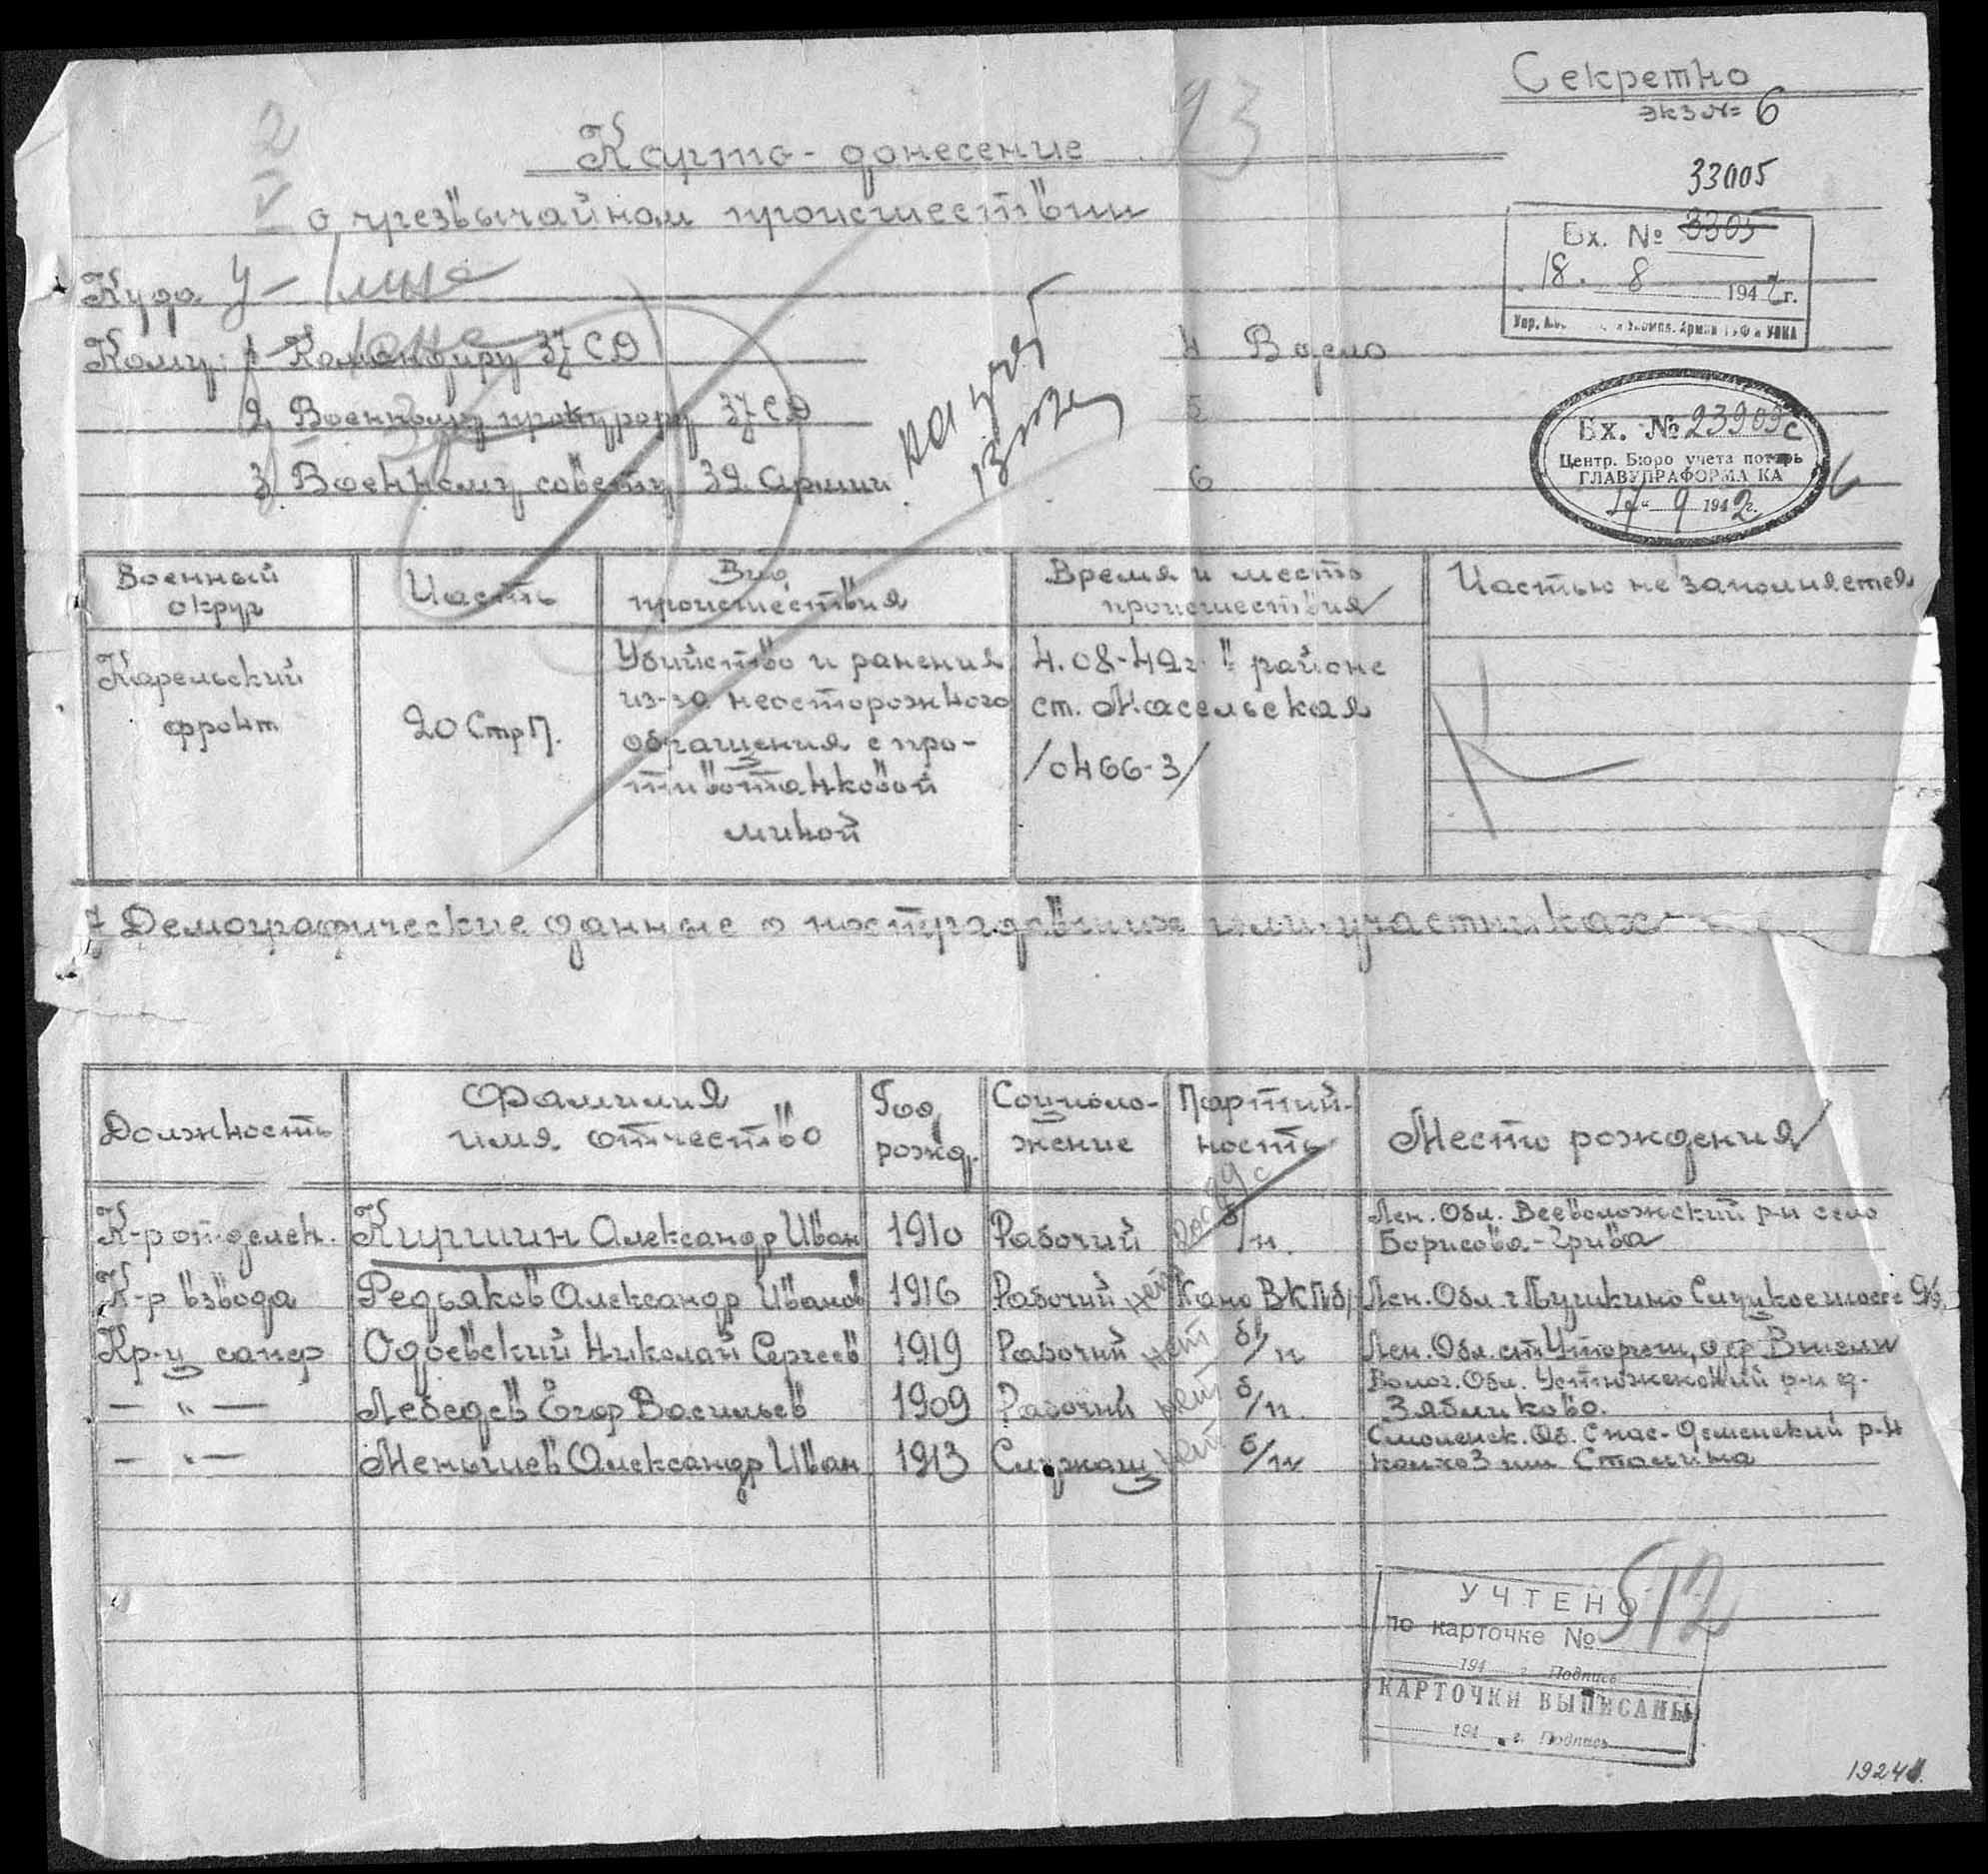 Секретно
экз № 6
23
2
Карто-донесение
о чрезвычайном происшествии
33005
Вх. № 3305
18. 8 1942 г.
Куда
Кому: 1 Командиру 37 СД
4 В дело
2 Военному прокурору 37 СД
5
3) Военному совету 32 Армии
6
на учет
Вх. № 23909с
Центр. Бюро учета потерь
ГЛАВУПРАФОРМА КА
17 " 9 1942 г.
Военный округ
Часть
Вид происшествия
Время и место происшествия
Частью не заполняется
Карельский фронт
20 Стр П.
Убийство и ранения
из-за неосторожного
обращения с про-
тивотанковой
миной
4.08-42 г. в районе
ст. Масельская
/0466-3/
7 Демографические данные о пострадавших или участниках
Должность
Фамилия имя отчество
Год рожд.
Соц.поло-жение
Партий-ность
Место рождения
К-р отделен. Киршин Александр Иван 1910 Рабочий б/п. Лен. Обл. Всеволожский р-н село Борисова-Грива
К-р взвода Редьяков Александр Иванов 1916 Рабочий нет Канд ВКПб/ Лен. Обл. г Пушкино Слуцкое шоссе
Кр-ц сапер Одоевский Николай Сергеев 1919 Рабочий нет б/п Лен. Обл. ст. Уторгош, дер
— " — Лебедев Егор Васильев 1909 Рабочий нет б/п. Волог. Обл. Устюженский р-н д. Зябликово.
— " — Меньшиев Александр Иван 1913 Служащ нет б/п Смоленск. Об. Спас-Деменский р-н колхоз им Сталина
УЧТЕНО
по карточке № 512
194 г. Подпись
КАРТОЧКИ ВЫПИСАНЫ
194 г. Подпись